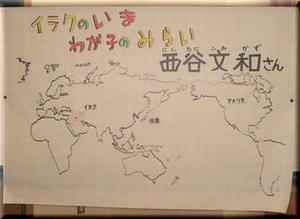 イラクのいま
わが子のみらい
にし たに ふみ かず
西谷文和さん
イラク
日本
アメリカ